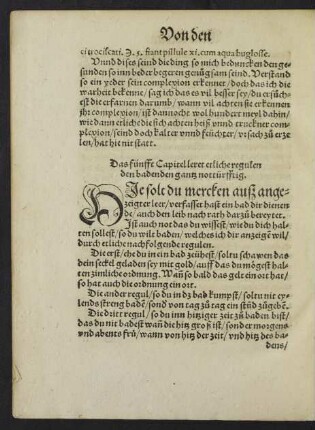 Von den
ci ꝛ ocisicati. Ʒ. ẞ. fiant pillule xi. cum aqua buglosse.
Vnnd dises seind die ding so mich beduncken den ge-
sunden so inn beder begeren genůg sam seind. Verstand
so ein yeder sein complexion erkenner / doch das ich die
warheit bekenne / sag ich das es vil besser sey / du ersůch-
est die erfarnen darumb / wann vil achten sie erkennen
jht complexion / ist dannocht wol hundert meyl dahin /
wie dann etliche die sich achten heiß vnnd truckner com-
plexion / seind doch kalter vnnd feüchter / vrsach zů erze
len / hat hie nit statt.
Das fünfft Capitel leret etliche regulen
den badenden gantz notturfftig.
HIe solt du mercken auß ange-
zeigter leer / verfasser hast ein bad dir dienen
de / auch den leib nach rath darzů bereytet.
Ist auch not das du wissest / wie du dich hal-
ten sollest / so du wilt baden / welches ich dir anzeigẽ wil /
durch etliche nachfolgende regulen.
Die erst / ehe du in ein bad zeühest / soltu schawen das
dein seckel geladen sey mit gold / auff das du mögest hal-
ten zimliche ordnung. Wañ so bald das gelt ein ort hat /
so hat auch die ordnung ein ort.
Die ander regul / so du in dz bad kumpst / soltu nit ey-
lends streng badẽ / sond von tag zů tag ein stũd zůgebẽ.
Die dritt regul / so du inn hitziger zeit zů baden bist /
das du nit badest wañ die hitz groß ist / sonder morgens
vnd abents frů / wann von hitz der zeit / vnd hitz des ba-
dens /